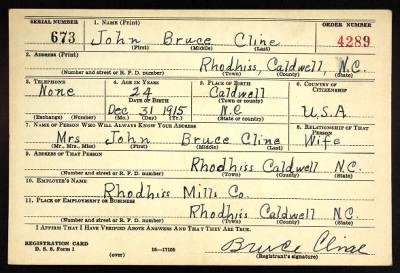 SERIAL NUMBER 1. NAME (Print) ORDER NUMBER
673 John Bruce Cline 4289
(First) (Middle) (Last)
2. ADDRESS (Print)
Rhodhiss, Caldwell, N.C.
(Number and street or R. F. D. number) (Town) (County) (State)
3. TELEPHONE 4. AGE IN YEARS 5. PLACE OF BIRTH 6. COUNTRY OF CITIZENSHIP
None 24 Caldwell
DATE OF BIRTH (Town or county)
Dec. 31 1915 N.C. U.S.A
(Exchange) (Number) (Mo.) (Day) (Yr.) (State or country)
7. NAME OF PERSON WHO WILL ALWAYS KNOW YOUR ADDRESS 8. RELATIONSHIP OF THAT PERSON
Mrs John Bruce Cline Wife
(Mr., Mrs., Miss) (First) (Middle) (Last)
9. ADDRESS OF THAT PERSON
Rhodhiss Caldwell N.C.
(Number and street or R. F. D. number) (Town) (County) (State)
10. EMPLOYER'S NAME
Rhodhiss Mills Co.
11. PLACE OF EMPLOYMENT OR BUSINESS
Rhodhiss Caldwell N.C.
(Number and street or R. F. D. number) (Town) (County) (State)
I AFFIRM THAT I HAVE VERIFIED ABOVE ANSWERS AND THAT THEY ARE TRUE.
Bruce Cline
REGISTRATION CARD
D. S. S. Form 1 (over) 16—17105 (Registrant's signature)